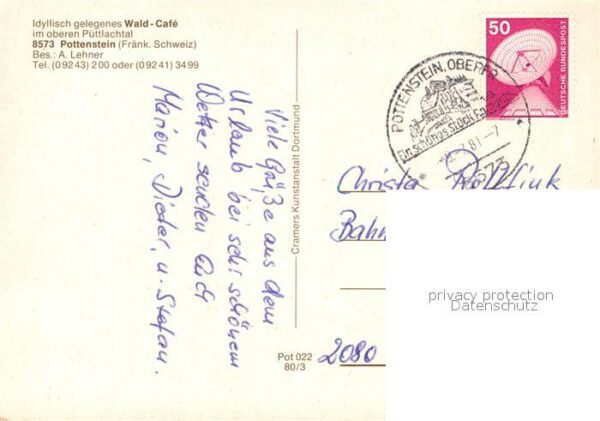 Idyllisch gelegenes Wald-Café
im oberen Püttlachtal
8573 Pottenstein (Fränk. Schweiz)
Bes.: A. Lehner
Tel. (09243) 200 oder (09241) 3499
Viele Grüße aus dem
Urlaub bei sehr schönem
Wetter senden Euch
Marion, Dieter, u. Stefan.
Cramers Kunstanstalt Dortmund
Pot 022
80/3
50
DEUTSCHE BUNDESPOST
POTTENSTEIN, OBERFR
Ein schönes Stück
81-7
8573
Christa
Bahn
2080
privacy protection
Datenschutz